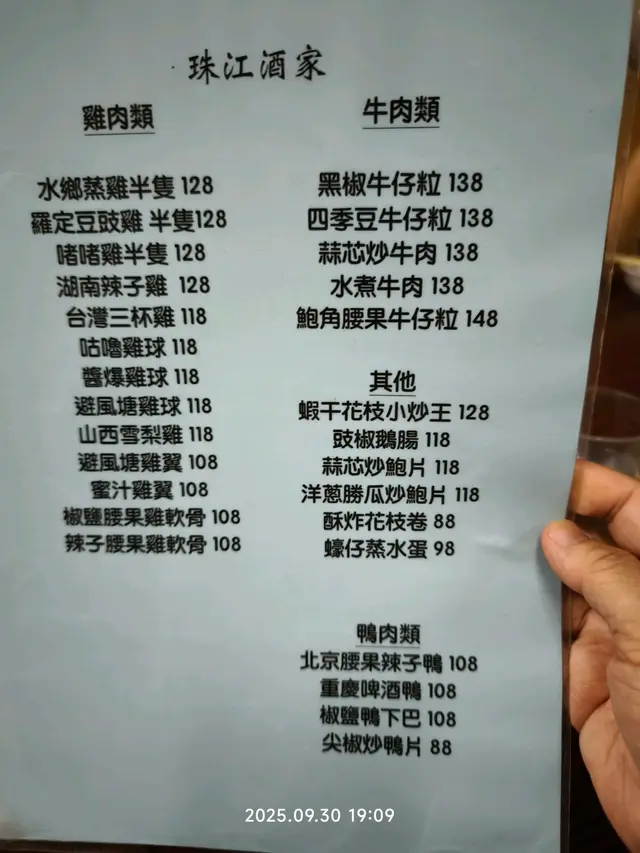 珠江酒家
雞肉類
水鄉蒸雞半隻 128
羅定豆豉雞 半隻128
啫啫雞半隻 128
湖南辣子雞 128
台灣三杯雞 118
咕嚕雞球 118
醬爆雞球 118
避風塘雞球 118
山西雪梨雞 118
避風塘雞翼 108
蜜汁雞翼 108
椒鹽腰果雞軟骨 108
辣子腰果雞軟骨 108
牛肉類
黑椒牛仔粒 138
四季豆牛仔粒 138
蒜芯炒牛肉 138
水煮牛肉 138
鮑角腰果牛仔粒 148
其他
蝦干花枝小炒王 128
豉椒鵝腸 118
蒜芯炒鮑片 118
洋蔥勝瓜炒鮑片 118
酥炸花枝卷 88
蠔仔蒸水蛋 98
鴨肉類
北京腰果辣子鴨 108
重慶啤酒鴨 108
椒鹽鴨下巴 108
尖椒炒鴨片 88
2025.09.30 19:09